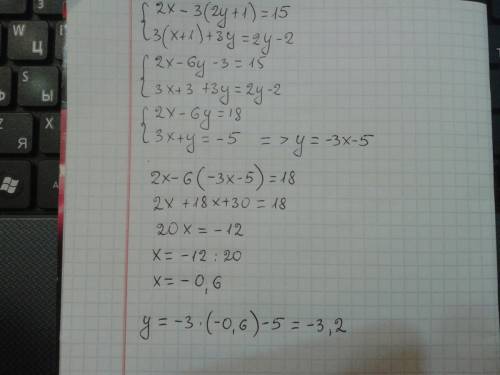 2x - 3(2y+1) = 15
3(x+1)+3y = 2y-2
2x - 6y - 3 = 15
3x+3 +3y = 2y-2
2x - 6y = 18
3x+y = -5 => y = -3x-5
2x-6(-3x-5) = 18
2x +18x+30 = 18
20x = -12
x = -12 : 20
x = -0,6
y = -3·(-0,6)-5 = -3,2
З
Ц
W
Ы
S
Я
Z